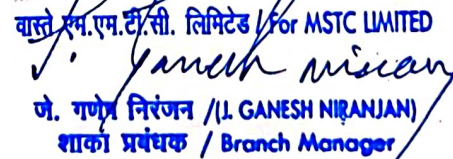 वास्ते एम.एम.टी.सी. लिमिटेड / For MSTC LIMITED
J. Ganesh Niranjan
जे. गणेश निरंजन /(J. GANESH NIRANJAN)
शाका प्रबंधक / Branch Manager